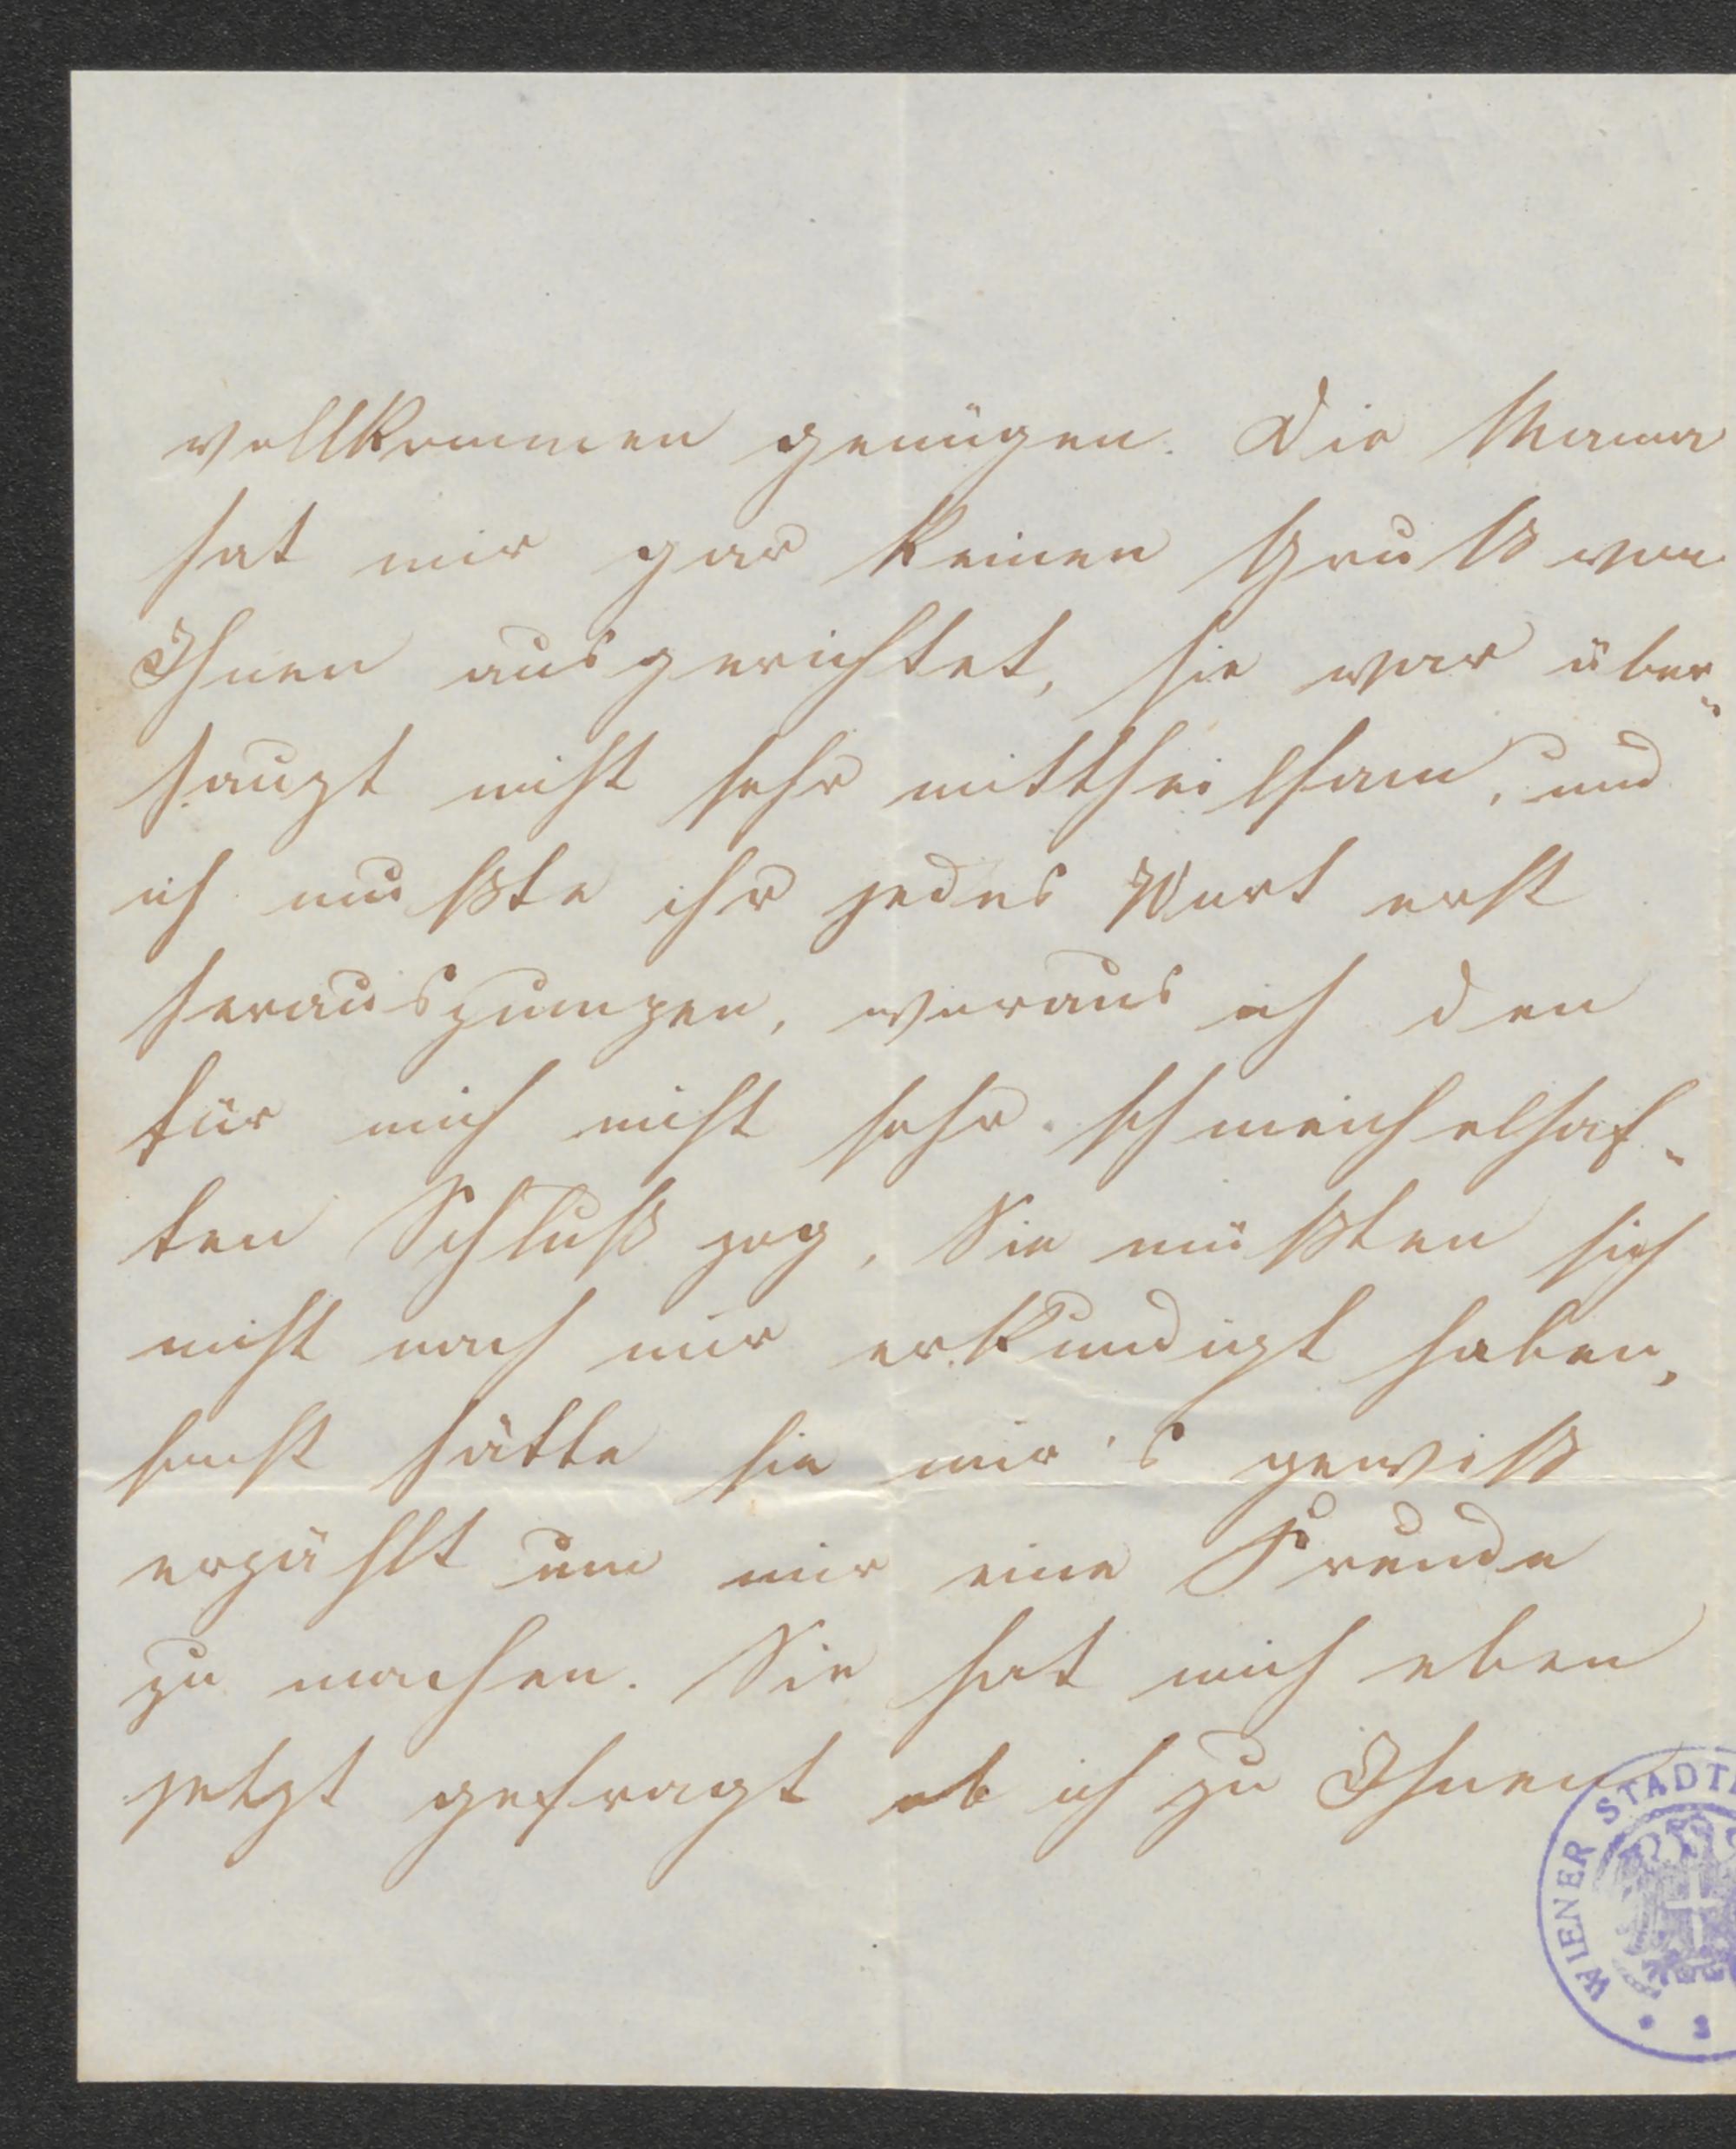 vollkommen genügen. Die Mama
hat mir gar keinen Gruß von
Ihnen ausgerichtet, sie war über-
haupt nicht sehr mittheilsam, und
ich mußte ihr jedes Wort erst
herauspumpen, woraus ich den
für mich nicht sehr schmeichelhaf-
ten Schluß zog, Sie müßten sich
nicht nach mir erkundigt haben,
sonst hätte sie mir's gewiß
erzählt um mir eine Freude
zu machen. Sie hat mich eben
jetzt gefragt ob ich zu Ihnen
WIENER STADT